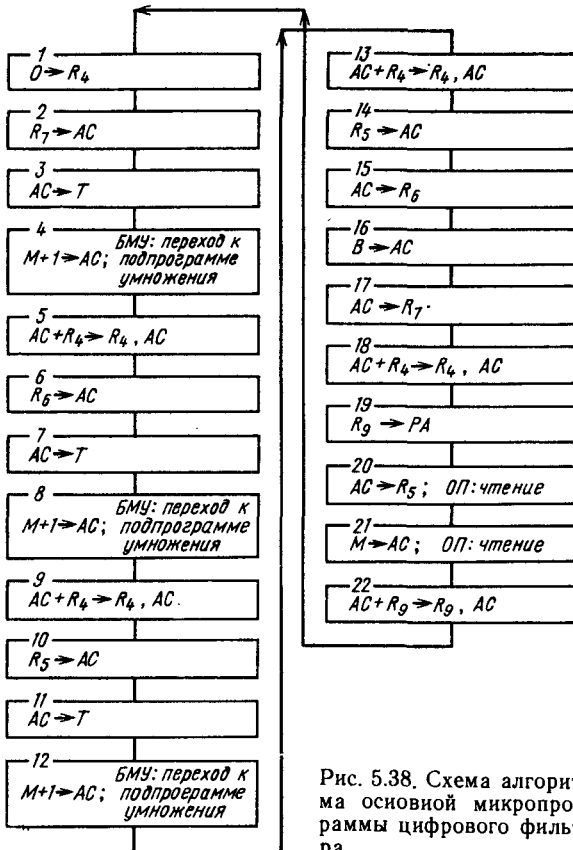 1
O→R₄
2
R₇→AC
3
AC→T
4
БМУ: переход к
M+1→AC; подпрограмме
умножения
5
AC+R₄→R₄, AC
6
R₆→AC
7
AC→T
8
БМУ: переход к
M+1→AC; подпрограмме
умножения
9
AC+R₄→R₄, AC.
10
R₅→AC
11
AC→T
12
БМУ: переход к
M+1→AC; подпрограмме
умножения
13
AC+R₄→R₄, AC
14
R₅→AC
15
AC→R₆
16
B→AC
17
AC→R₇
18
AC+R₄→R₄, AC
19
R₉→PA
20
AC→R₅; ОП: чтение
21
M→AC; ОП: чтение
22
AC+R₉→R₉, AC
Рис. 5.38. Схема алгорит-
ма основной микропро-
граммы цифрового фильт-
ра